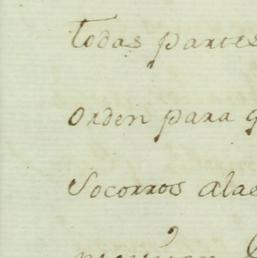 todas partes
orden para
Socorros alas